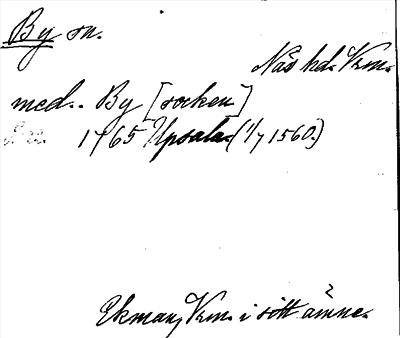 By sn.
Näs hd. Vrm.
med. By [socken]
1765 Upsala (1/7 1560.)
Ekman, Vrm. i sitt ämne.